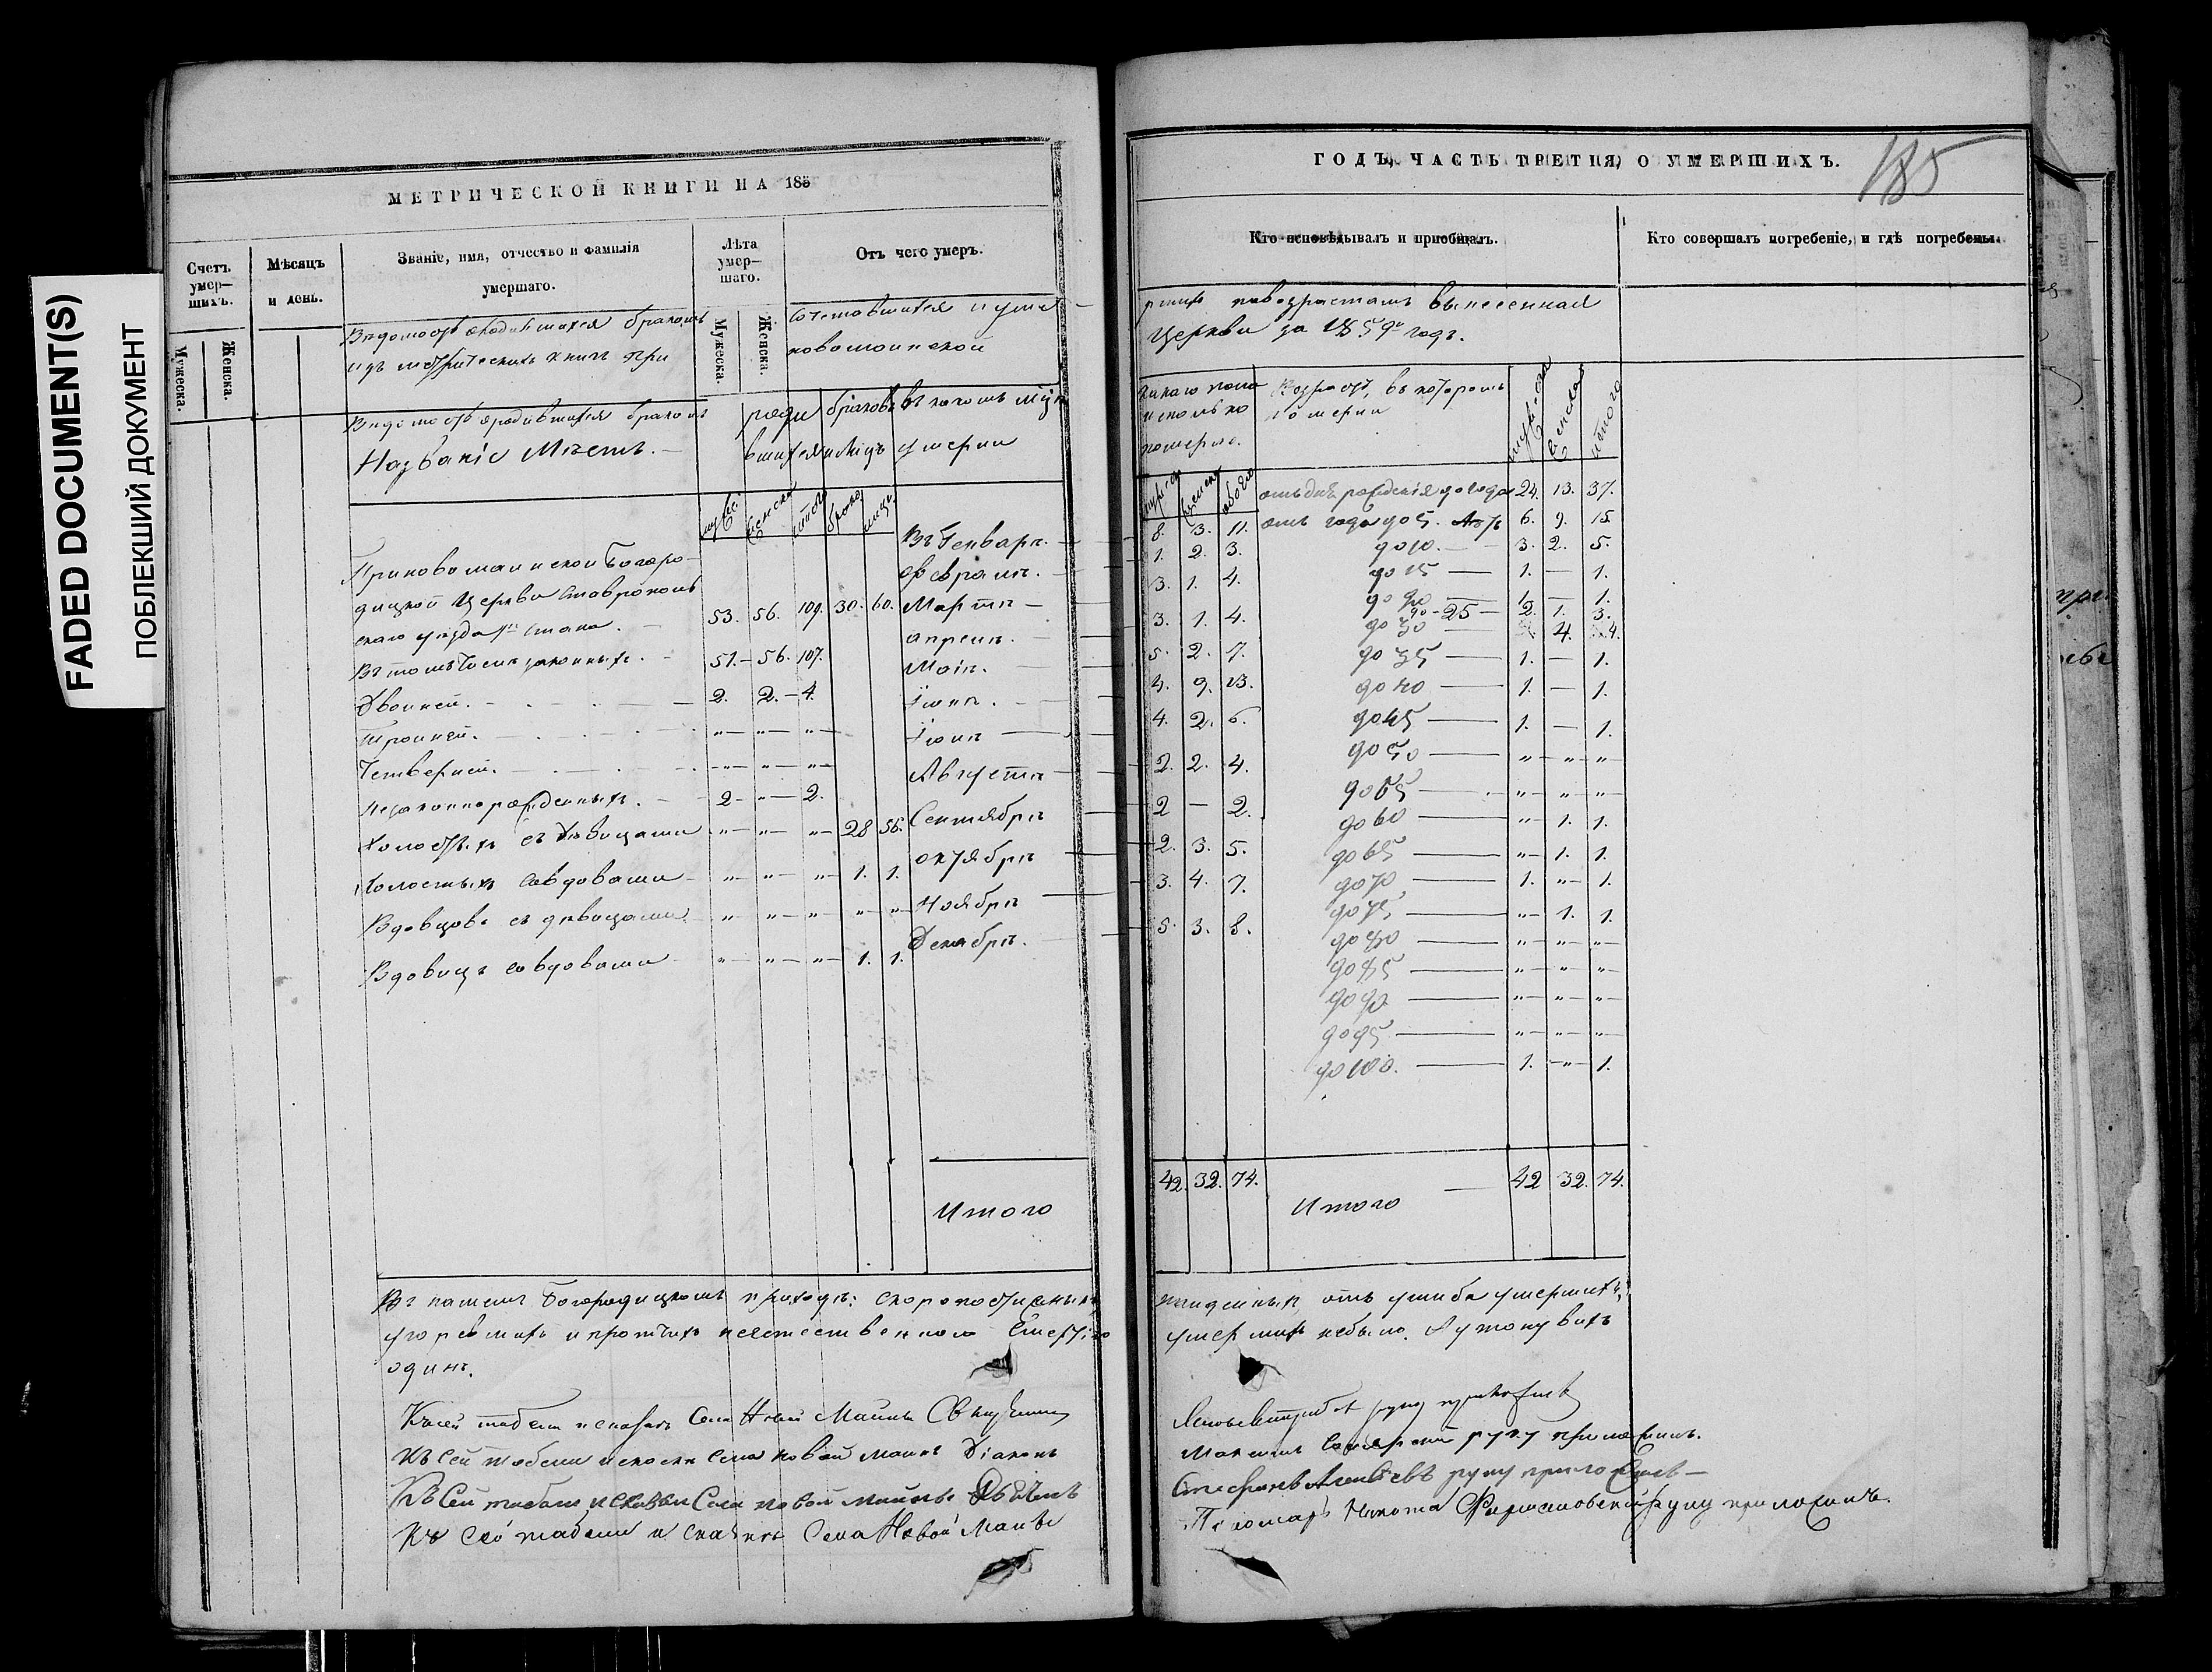 FADED DOCUMENT(S)
ПОБЛЕКШИЙ ДОКУМЕНТ
МЕТРИЧЕСКОЙ КНИГИ НА 185
Счетъ умер-шихъ.
Мужеска.
Женска.
Мѣсяцъ и день.
Званіе, имя, отчество и фамилія умершаго.
Лѣта умер-шаго.
Мужеска.
Женска.
Отъ чего умеръ.
Вѣдомость о родившихся бракомъ сочетавшихся и уме
изъ метрическихъ книгъ при новомаинской
Вѣдомость о родившихся бракомъ
Названіе Мѣстъ.
въ какомъ
умерли
При новомаинской Богоро-
дицкой Церкви Ставрополь
скаго уѣзда стана. 53. 56. 109. 30. 60.
Въ томъ числѣ законныхъ. 51. 56. 107.
Двойней. 2. 2. 4.
Тройней. " " "
Четверней. " " "
Незаконнорожденныхъ. 2 " 2.
Холостыхъ съ дѣвицами " " " 28 56.
Холостыхъ со вдовами " " " 1. 1.
Вдовцовъ съ дѣвицами " " " " "
Вдовцовъ со вдовами " " " 1. 1.
Въ Генварѣ.
Февралѣ.
Мартѣ
апрелѣ.
Маіѣ.
Іюнѣ.
Іюлѣ
Августѣ
Сентябрѣ
октябрѣ
Ноябрѣ
Декабрѣ.
Итого
Въ нашемъ Богородицкомъ приходѣ: скоропостижныхъ
угоревшихъ и протчихъ неестественною смертію
одинъ.
Къ сей табели Села Новой Маины Священникъ
Къ сей табели села новой маины Діаконъ
Къ Сей табели Села новой маины
Къ сей табели Села Новой Маины
ГОДЪ, ЧАСТЬ ТРЕТІЯ, О УМЕРШИХЪ.
185
Кто исповѣдывалъ и пріобщалъ.
Кто совершалъ погребеніе, и гдѣ погребены.
ршихъ по возрастамъ вынесенная
Церкви за 1859й годъ.
какаго пола
и сколько
померло.
Возрастъ, въ которомъ
померли
итого
8. 3. 11.
1. 2. 3.
3. 1. 4.
3. 1. 4.
5. 2. 7.
4. 9. 13.
4. 2. 6.
2. 2. 4.
2 — 2.
2. 3. 5.
3. 4. 7.
5. 3. 8.
42. 32. 74.
отъ дня рожденія до года 24. 13. 37.
отъ года до 5. лѣтъ 6. 9. 15.
до 10. 3. 2. 5.
до 15 — 1. — 1.
до 20 — 1. — 1.
до 25 — 2. 1. 3.
до 30 — 4. 4.
до 35 — 1. — 1.
до 40 — 1. — 1.
до 45 — 1. — 1.
до 50 — " " "
до 55 — " " "
до 60 — " 1. 1.
до 65 — " 1. 1.
до 70 — 1. " 1.
до 75 — " 1. 1.
до 80 — " " "
до 85 — " " "
до 90 — " " "
до 95 — " " "
до 100. — 1. " 1.
Итого 42 32. 74.
отъ ушиба умершихъ,
умершихъ небыло. А утонувшихъ
руку приложилъ
руку приложилъ.
Стефанъ руку приложилъ
Пономарь Никита руку приложилъ.